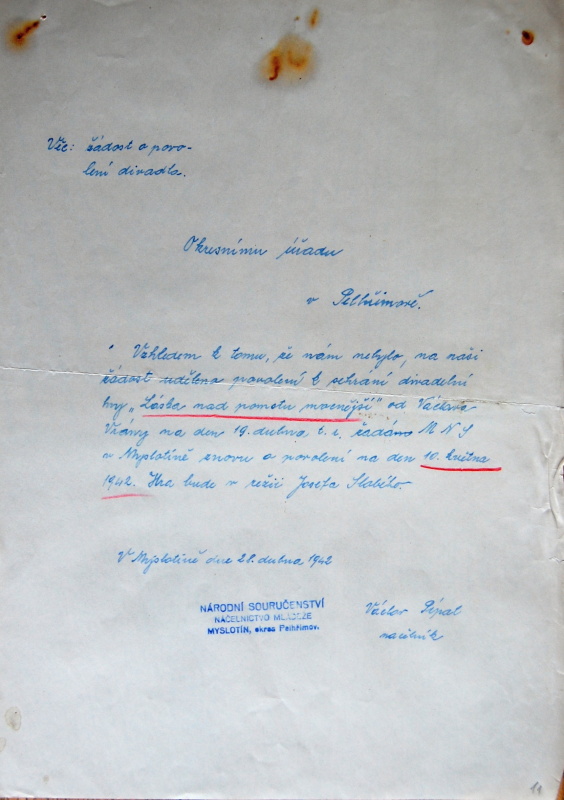 Věc: žádost o povo-
lení divadla.
Okresnímu úřadu
v Pelhřimově.
Vzhledem k tomu, že nám nebylo, na naši
žádost uděleno povolení k sehrání divadelní
hry „Láska nad pomstu mocnější" od Václava
Vrány na den 19. dubna t. r. žádá MNS
v Myslotíně znovu o povolení na den 10. května
1942. Hra bude v režii Josefa Slabého.
V Myslotíně dne 21. dubna 1942
NÁRODNÍ SOURUČENSTVÍ
NÁČELNICTVO MLÁDEŽE
MYSLOTÍN, okres Pelhřimov.
Václav
náčelník